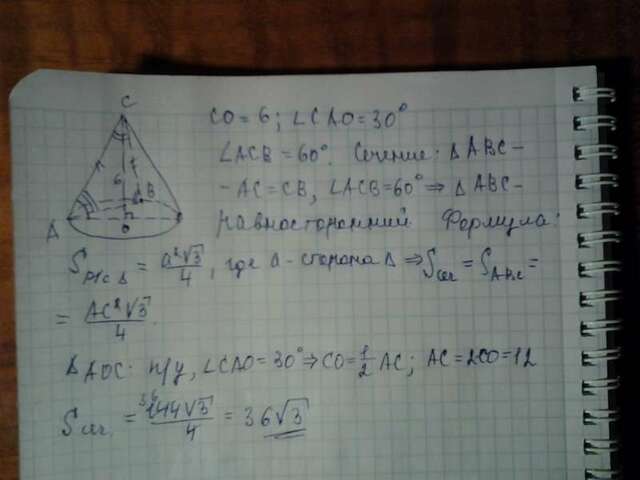 C
6
B
A
O
CO = 6; ∠CAO = 30°
∠ACB = 60°. Сечение: ΔABC –
– AC = CB, ∠ACB = 60° ⇒ ΔABC –
равносторонний Формула:
S р/с Δ = a²√3/4, где a - сторона Δ ⇒ S сеч = S ABC =
= AC²√3/4.
ΔAOC: п/у, ∠CAO = 30° ⇒ CO = 1/2 AC; AC = 2CO = 12
S сеч. = 36 144√3/4 = 36√3